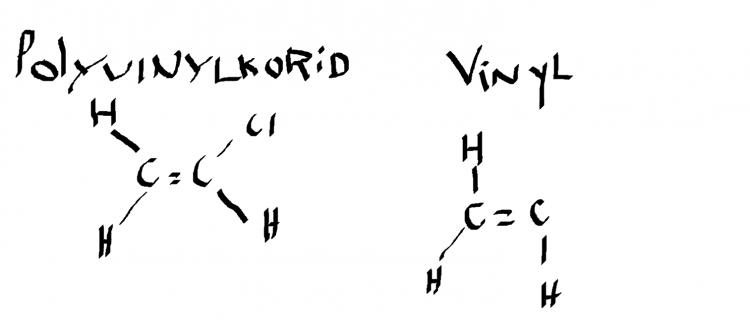 Polyvinylkorid
Vinyl
H Cl
C=C
H H
H
C=C
H H